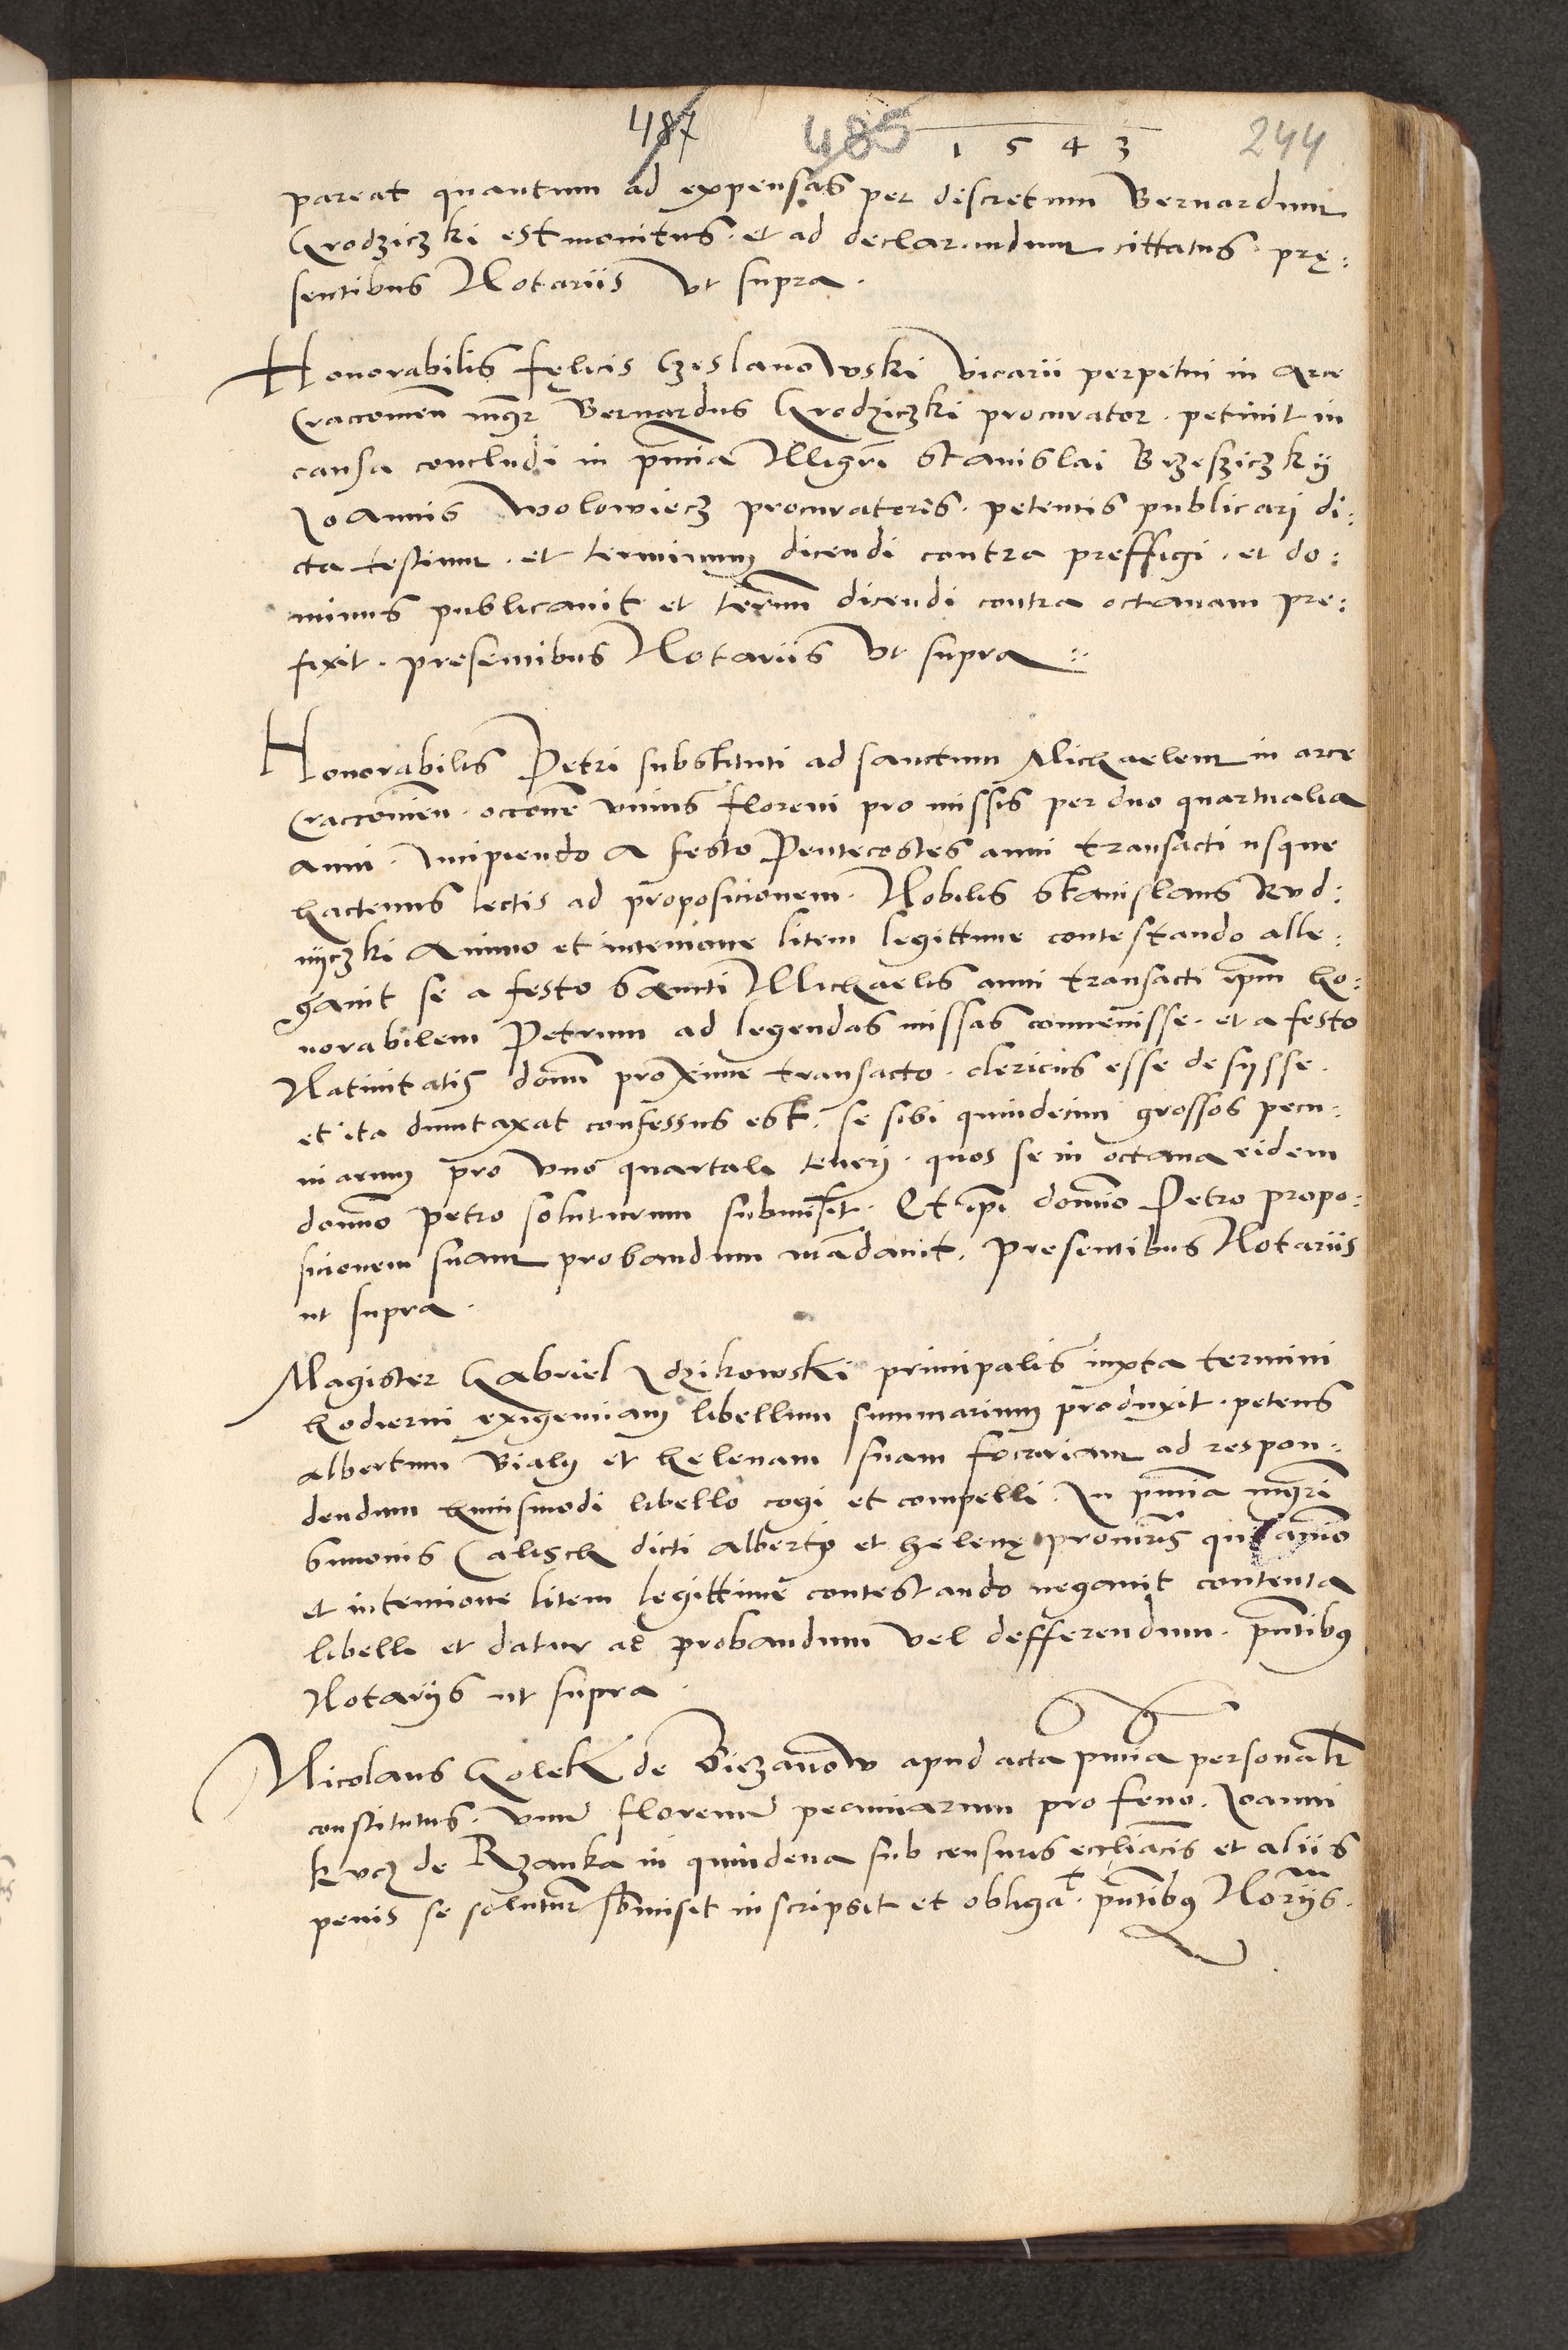 487 485 1543 244
pareat quantum ad expensas per discretum Bernardum
Grodziczki est monitus · et ad declarandum cittatus · prę:
sentibus Notariis Vt supra ·
Honorabilis fęlicis Czeslanowski Vicarii perpetui in Arce
Craccouien̄ mgr̄ Bernardus Grodziczki procurator · petiuit in
causa concludi in pn̄cia Mgrī Stanislai Brzesziczky
Ioannis Wolowiecz procuratoris · petentis publicari di:
cta testium · et terminum dicendi contra preffigi · et do:
minus publicauit et term̄ dicendi contra octauam pre:
fixit · presentibus Notariis Vt supra
Honorabilis Petri substituti ad sanctum Michaelem in arce
Craccouien̄ · occōne vnius floreni pro missis per duo quartualia
anni · Incipiendo A festo Pentecostes anni transacti usque
hactenus lectis ad proposicionem · Nobilis Stanislaus Rud:
nyczki Animo et intencione litem legittime contestando alle:
gauit se a festo Sancti Michaelis anni transacti ip̄m ho:
norabilem Petrum ad legendas missas conuenisse · et a festo
Natiuitatis domī proxime transacto · clericus esse desysse ·
et ita duntaxat confessus est · se sibi quindecim grossos pecu:
niarum pro vno quartali teneri · quos se in octaua eidem
domino Petro soluturum submisit · Et ip̄i domīo Petro propo:
sicionem suam probandum mādauit · presentibus Notariis
ut supra ·
Magister Gabriel Idzikowski principalis iuxta termini
hodierni exigenciam libellum summarium produxit · petens
Albertum Bialy et helenam suam focariam ad respon:
dendum huiusmodi libello cogi et compelli · In pn̄cia mgrī
Simonis Calisch dicti Alberti et helenę procuris̄ qui aīo
et intencione litem legittime contestando negauit contenta
libelli et datur ad probandum vel defferendum · pn̄tibus
Notariis ut supra ·
Nicolaus Golek de Biezanow apud acta pn̄cia personalr̄
constitutus · vnū florenū pecuniarum pro feno · Ioanni
kucz de Rzanka in quindena sub censuris ecclīacis et aliis
penis se soluturū sbmisit inscripsit et obligaᵗ · pn̄tibus Notr̄iis ·